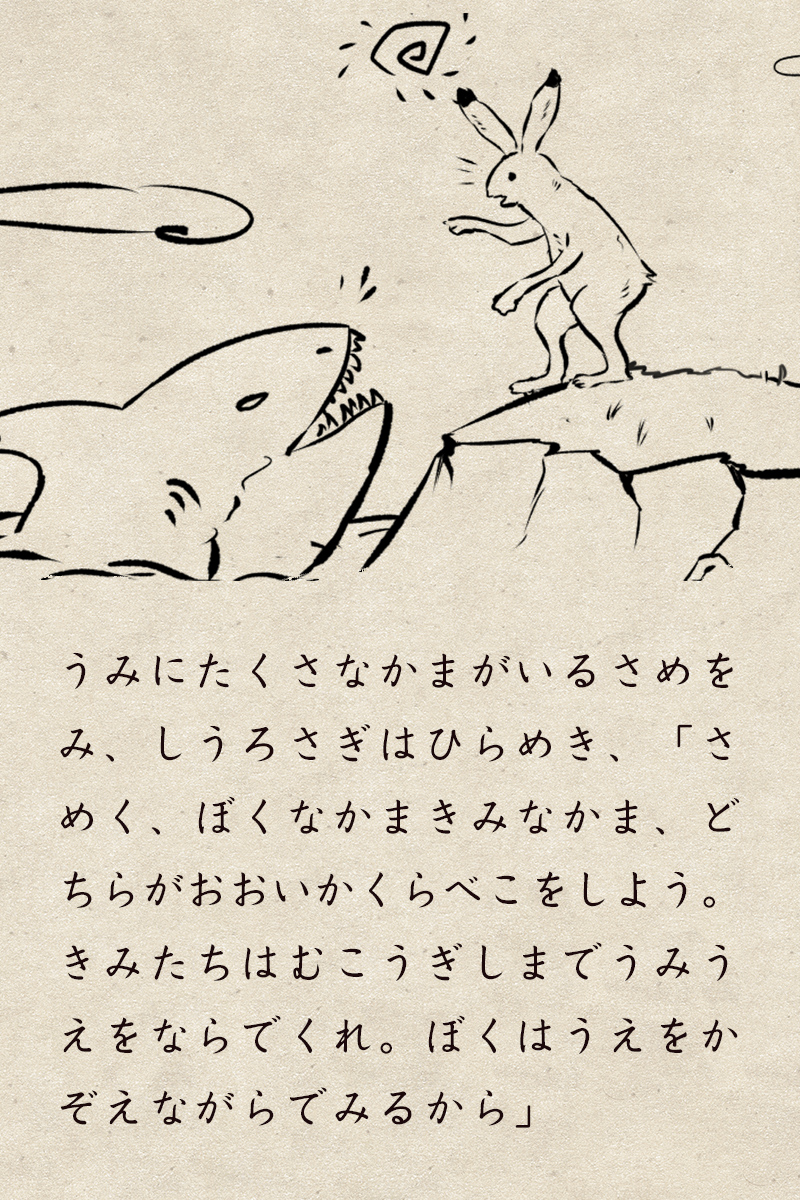 うみにたくさなかまがいるさめを
み、しうろさぎはひらめき、「さ
めく、ぼくなかまきみなかま、ど
ちらがおおいかくらべこをしよう。
きみたちはむこうぎしまでうみう
えをならでくれ。ぼくはうえをか
ぞえながらでみるから」